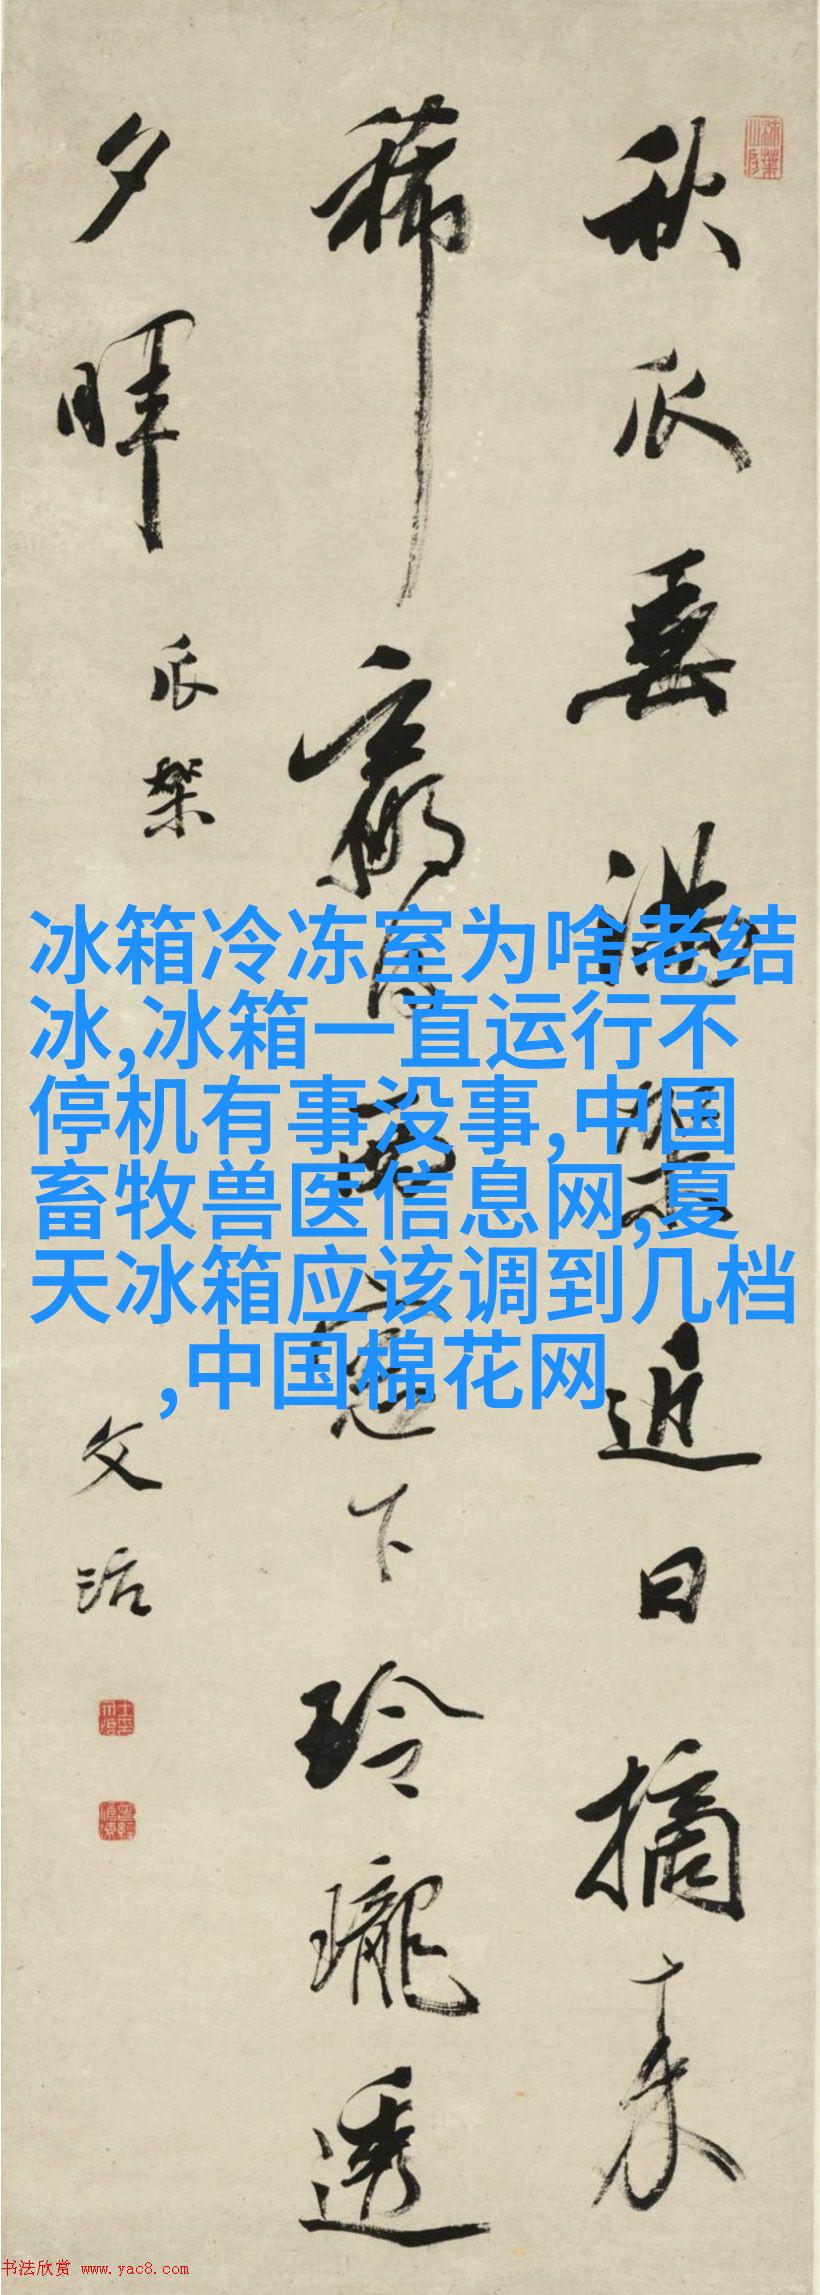 秋瓜垂滿架近日摘来
稀賸有兩窓下玲瓏透
夕暉
瓜架
文治
冰箱冷冻室为啥老结
冰,冰箱一直运行不
停机有事没事,中国
畜牧兽医信息网,夏
天冰箱应该调到几档
,中国棉花网
书法欣赏 www.yac8.com